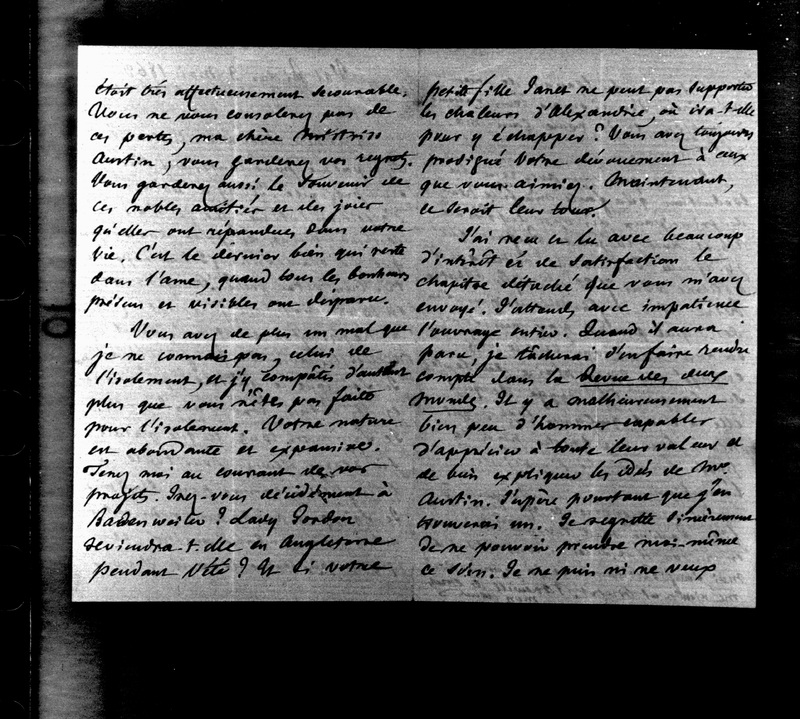 était très affectueusement secourable.
Vous ne vous consolerez pas de
ces pertes, ma chère Mistriss
Austin, vous garderez vos regrets.
Vous garderez aussi le Souvenir de
ces nobles amitiés et des joies
qu'elles ont répandues dans votre
vie. C'est le dernier bien qui reste
dans l'ame, quand tous les bonheurs
présens et visibles ont disparu.
Vous avez de plus un mal que
je ne connais pas, celui de
l'isolement, et j'y compâtis d'autant
plus que vous n'êtes pas faite
pour l'isolement. Votre nature
est abondante et expansive.
Tenez moi au courant de vos
projets. Irez-vous décidément à
Badenweiler? Lady Gordon
reviendra-t-elle en Angleterre
pendant l'été? Et si votre
petite fille Janet ne peut pas supporter
les chaleurs d'Alexandrie, où ira-t-elle
pour y échapper? Vous avez toujours
prodigué votre dévouement à ceux
que vous aimiez. Maintenant,
ce seroit leur tour.
J'ai reçu et lu avec beaucoup
d'intérêt et de satisfaction le
chapitre détaché que vous m'avez
envoyé. J'attends avec impatience
l'ouvrage entier. Quand il aura
paru, je tâcherai d'en faire rendre
compte dans la Revue des deux
mondes. Il y a malheureusement
bien peu d'hommes capables
d'apprécier à toute leur valeur et
de bien expliquer les idées de Mr.
Austin. J'espère pourtant que j'en
trouverai un. Je regrette sincèrement
de ne pouvoir prendre moi-même
ce soin. Je ne puis ni ne veux